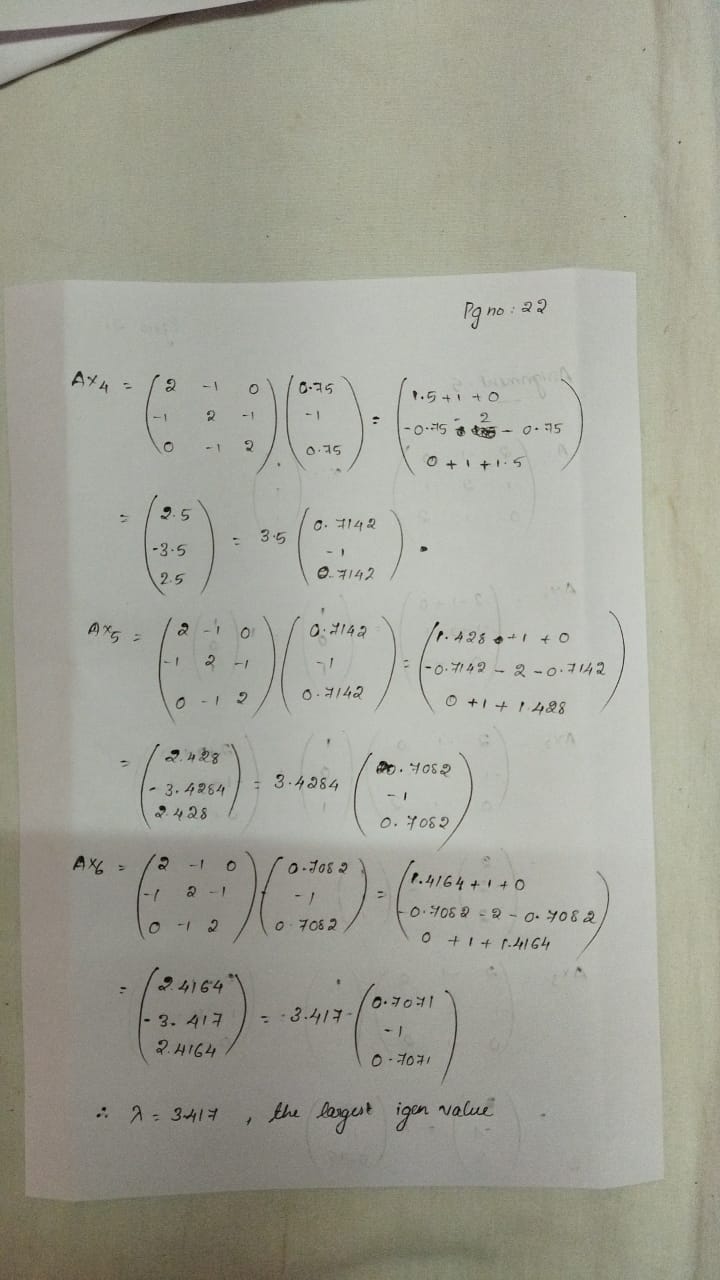 Pg no : 22
Ax4 = (2 -1 0; -1 2 -1; 0 -1 2) (0.75; -1; 0.75) = (1.5+1+0; -0.75 - 2 - 0.75; 0+1+1.5)
= (2.5; -3.5; 2.5) = 3.5 (0.7142; -1; 0.7142)
Ax5 = (2 -1 0; -1 2 -1; 0 -1 2) (0.7142; -1; 0.7142) = (1.428+1+0; -0.7142 - 2 - 0.7142; 0+1+1.428)
= (2.428; -3.4284; 2.428) = 3.4284 (0.7082; -1; 0.7082)
Ax6 = (2 -1 0; -1 2 -1; 0 -1 2) (0.7082; -1; 0.7082) = (1.4164+1+0; -0.7082 - 2 - 0.7082; 0+1+1.4164)
= (2.4164; -3.417; 2.4164) = 3.417 (0.7071; -1; 0.7071)
∴ λ = 3.417 , the largest igen value